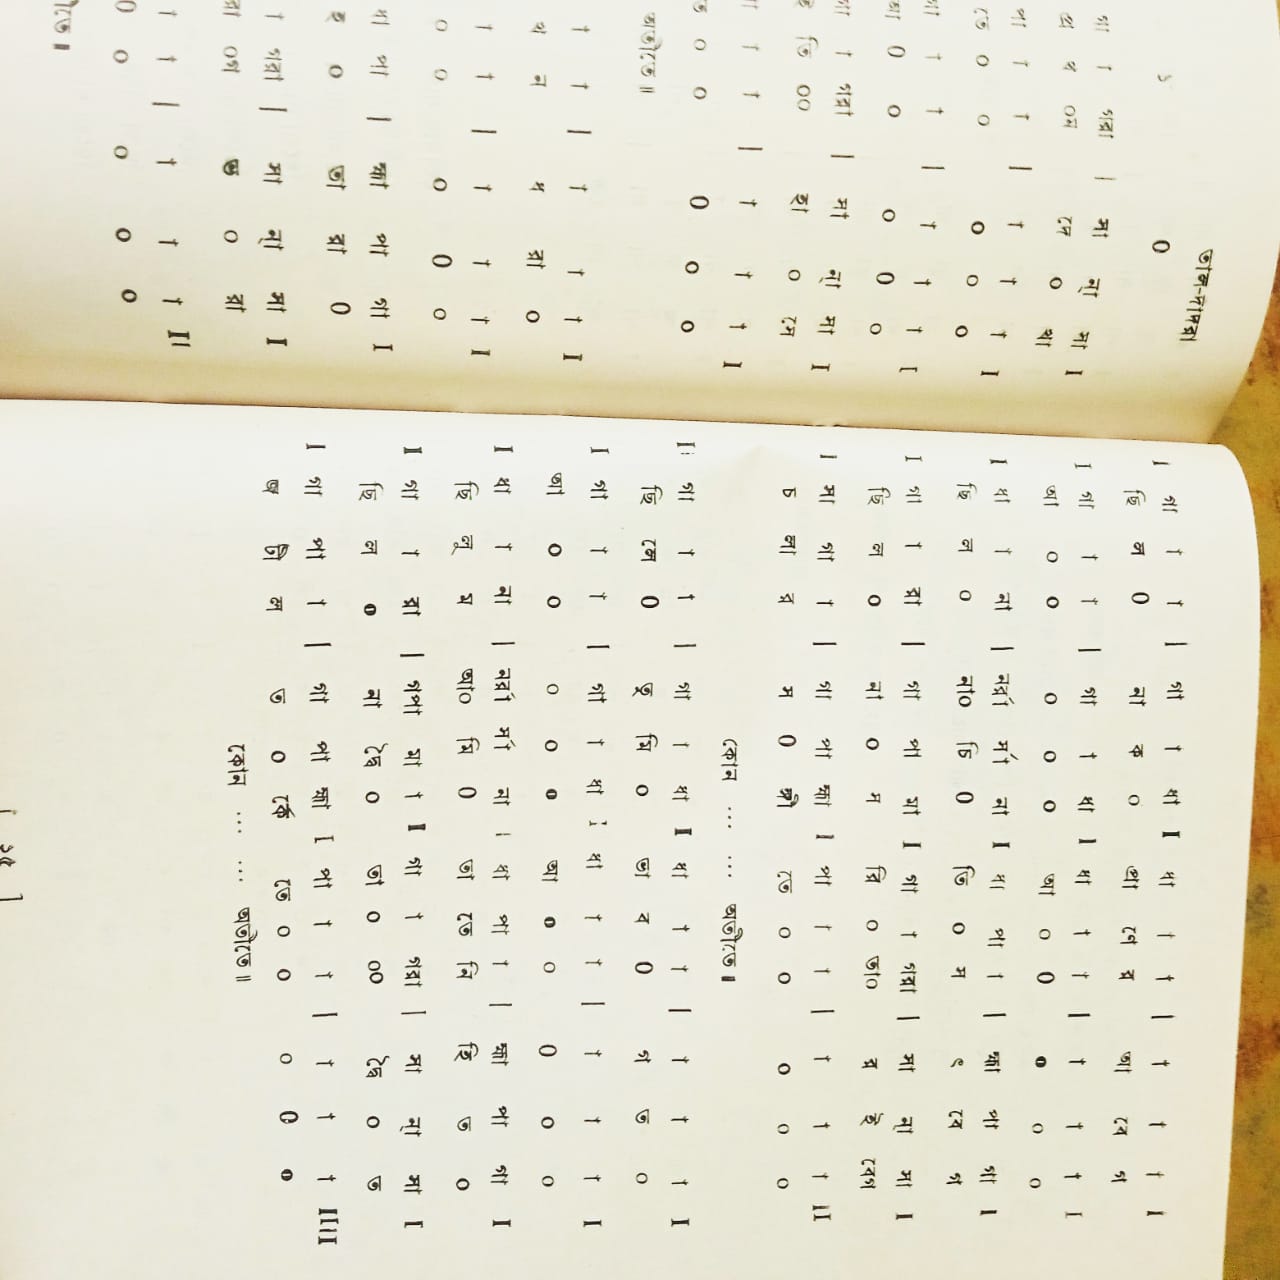 তাল-দাদরা
১ 0
গা † গরা | সা ন্‌া সা I
প্র থ ০ম দে ০ খা
পা † † | † † † I
তে ০ ০ ০ ০ ০
† † | † † † I
0 ০ ০ 0 ০
† গরা | সা ন্‌া সা I
তি ০০ হা ০ সে
† † | † † † I
০ ০ 0 ০ ০
অতীতে॥
† † | † † † I
থ ন ধ রা ০
† † | † † † I
০ ০ ০ 0 ০
ধা পা | হ্মা পা গা I
০ তা রা 0
† গরা | সা ন্‌া সা I
রা ০গ ভ ০ রা
† † | † † † II
0 ০ ০ ০ ০
তে॥
I গা † † | গা † ধা I ধা † † | † † † I
ছি ল 0 না ক ০ প্রা ণে র আ বে গ
I গা † † | গা † ধা I ধা † † | † † † I
আ ০ ০ ০ ০ ০ আ ০ 0 ০ ০ ০
I ধা † না | নর্রা র্সা না I ধা পা † | হ্মা পা গা I
ছি ল ০ না০ চি 0 তি ০ ম ৎ বে গ
I গা † রা | গা পা মা I গা † গরা | সা ন্‌া সা I
ছি ল ০ না ০ ম রি ০ ভা০ র ই বেগ
I সা গা † | গা পা হ্মা I পা † † | † † † II
চ লা র স 0 ঙ্গী তে ০ ০ ০ ০ ০
কোন ... ... অতীতে॥
I গা † † | গা † ধা I ধা † † | † † † I
ছি লে 0 তু মি ০ ভা ব 0 গ ত ০
I গা † † | গা † ধা I ধা † † | † † † I
আ ০ ০ ০ ০ ০ আ ০ ০ 0 ০ ০
I ধা † না | নর্রা র্সা না I ধা পা † | হ্মা পা গা I
ছি লু ম আ০ মি 0 তা তে নি হি ত ০
I গা † রা | গপা মা † I গা † গরা | সা ন্‌া সা I
ছি ল ০ না দ্বৈ ০ তা ০ ০০ দ্বৈ ০ ত
I গা পা † | গা পা হ্মা I পা † † | † † † IIII
জ টি ল ত ০ র্কে তে ০ ০ ০ 0 ০
কোন ... ... অতীতে॥